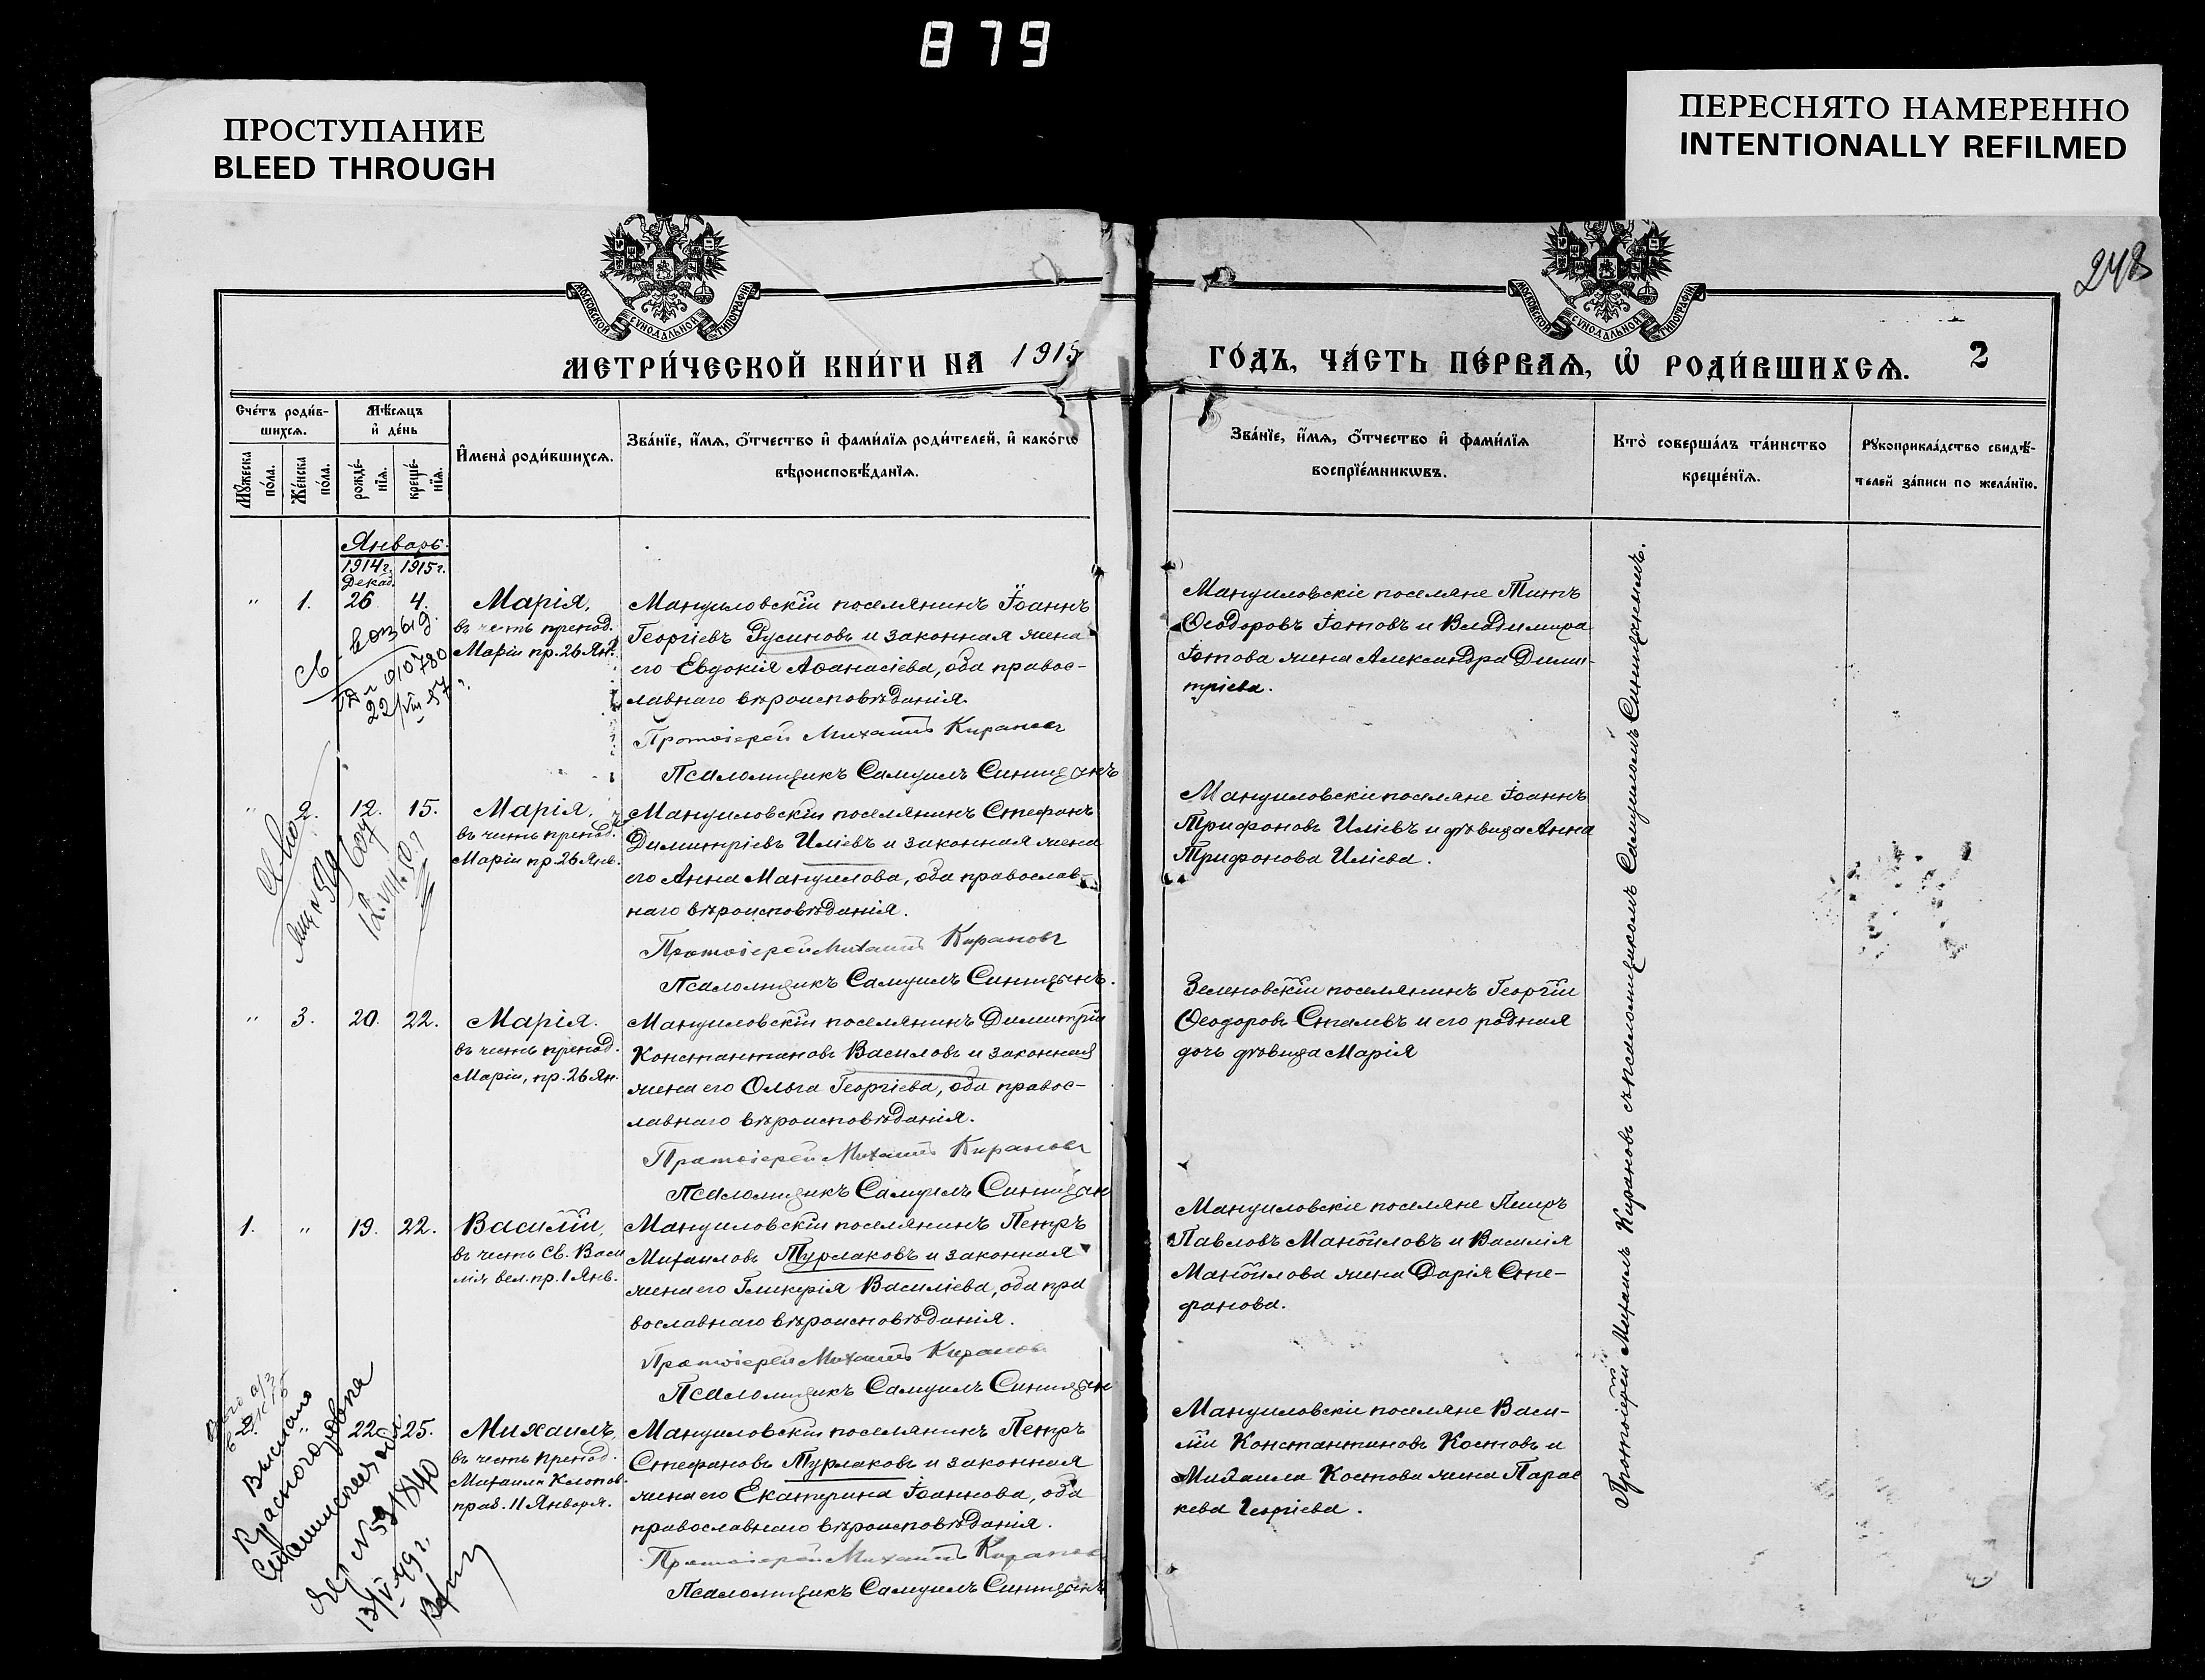 879
ПРОСТУПАНИЕ
BLEED THROUGH
ПЕРЕСНЯТО НАМЕРЕННО
INTENTIONALLY REFILMED
248
МОСКОВСКОЙ СѴНОДАЛЬНОЙ ТИПОГРАФІИ
МОСКОВСКОЙ СѴНОДАЛЬНОЙ ТИПОГРАФІИ
МЕТРИ́ЧЕСКОЙ КНИ́ГИ НА 1915
ГО́ДЪ, ЧА́СТЬ ПЕ́РВАѦ, Ѡ҆ РОДИ́ВШИХСѦ. 2
Сче́тъ роди́в-
шихсѧ.
Мѣ́сѧцъ
и҆ де́нь
Мꙋ́жеска по́ла.
Же́нска по́ла.
рожде́-
нїѧ.
креще́-
нїѧ.
И҆мена̀ роди́вшихсѧ.
Зва́нїе, и҆́мѧ, ѻ҆́тчество и҆ фами́лїѧ роди́телей, и҆ како́гѡ
вѣроисповѣ́данїѧ.
Зва́нїе, и҆́мѧ, ѻ҆́тчество и҆ фами́лїѧ
воспрїе́мникѡвъ.
Кто̀ соверша́лъ та́инство
креще́нїѧ.
Рꙋкоприкла́дство свидѣ́-
телей за́писи по жела́нїю.
Январь.
1914 г. 1915 г.
Декаб.
" 1. 26 4.
Марія,
въ честь препод.
Маріи пр. 26 Янв.
Мануиловскій поселянинъ Іоаннъ
Георгіевъ Русиновъ и законная жена
его Евдокія Аѳанасіева, оба правос-
лавнаго вѣроисповѣданія.
Протоіерей Михаилъ Кирановъ
Псаломщикъ Самуилъ Синицанъ
Мануиловскіе поселяне Титъ
Ѳеодоровъ Іотовъ и Владимира
Іотова жена Александра Дими-
тріева.
22/VIII 57 г.
" 2. 12. 15.
Марія,
въ честь препод.
Маріи пр. 26 Янв.
Мануиловскій поселянинъ Стефанъ
Димитріевъ Иліевъ и законная жена
его Анна Мануилова, оба православ-
наго вѣроисповѣданія.
Протоіерей Михаилъ Кирановъ
Псаломщикъ Самуилъ Синицанъ.
Мануиловскіе поселяне Іоаннъ
Трифоновъ Иліевъ и дѣвица Анна
Трифонова Иліева.
12.VIII.50 г
" 3. 20. 22.
Марія.
въ честь препод.
Маріи, пр. 26 Ян.
Мануиловскій поселянинъ Димитрій
Константиновъ Василовъ и законная
жена его Ольга Георгіева, оба правос-
лавнаго вѣроисповѣданія.
Протоіерей Михаилъ Кирановъ
Псаломщикъ Самуилъ Синицан
Зеленовскій поселянинъ Георгій
Ѳеодоровъ Сталевъ и его родная
дочь дѣвица Марія
1. " 19. 22.
Василій,
въ честь Св. Васи
лія вел. пр. 1 Янв.
Мануиловскій поселянинъ Петръ
Михаиловъ Турлаковъ и законная
жена его Гликерія Василіева, оба пра
вославнаго вѣроисповѣданія.
Протоіерей Михаилъ Кирановъ
Псаломщикъ Самуилъ Синицан
Мануиловскіе поселяне
Павловъ Манойловъ и Василія
Манойлова жена Дарія Сте-
фанова.
2. " 22 25.
Михаилъ,
въ честь препод.
Михаила Клопов.
праз. 11 Января.
Мануиловскій поселянинъ Петръ
Стефановъ Турлаковъ и законная
жена его Екатерина Іоаннова, оба
православнаго вѣроисповѣданія.
Протоіерей Михаилъ Кирановъ
Псаломщикъ Самуилъ Синицанъ
Мануиловскіе поселяне Васи-
лій Константиновъ Костовъ и
Михаила Костова жена Парас
кева Георгіева.
Выслано
Протоіерей Михаилъ Кирановъ съ псаломщикомъ Самуиломъ Синицаномъ.